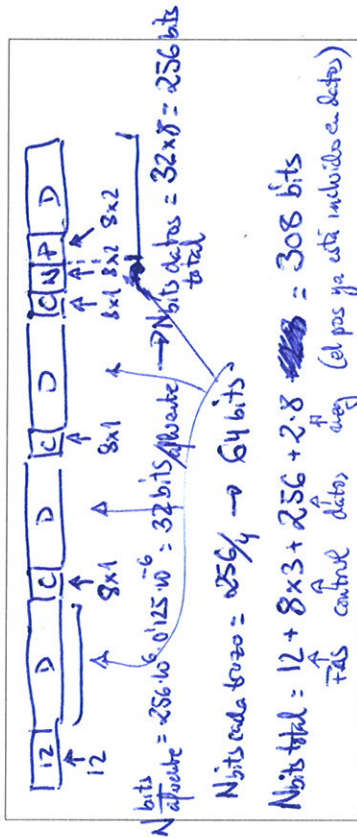 12 D C D C D C N P D
12 8x1 8x1 8x1 8x2 8x2
N bits/afluente = 256·10⁶·0'125·10⁻⁶ = 32 bits/afluente → N bits datos total = 32x8 = 256 bits
N bits cada trozo = 256/4 → 64 bits
N bits total = 12 + 8x3 + 256 + 2·8 = 308 bits
FAS control datos neg (el pos ya está incluido en datos)